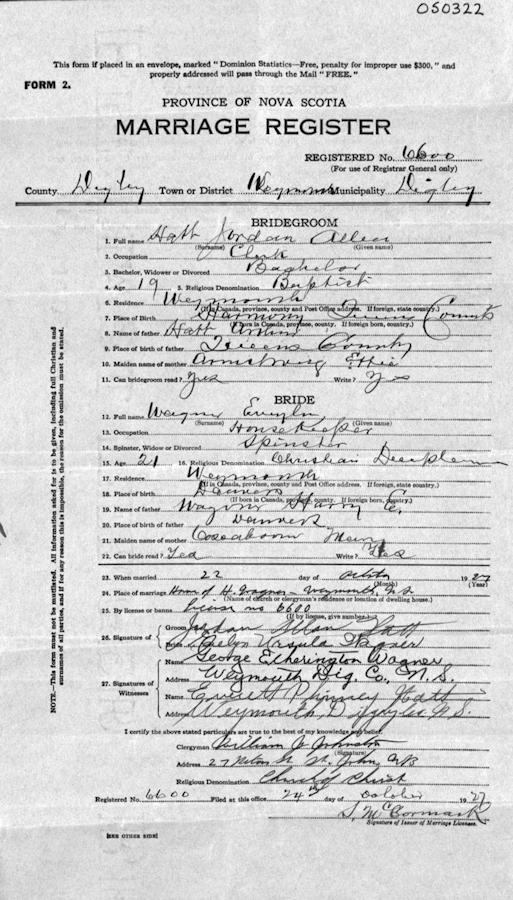 050322
This form if placed in an envelope, marked "Dominion Statistics—Free, penalty for improper use $300," and
properly addressed will pass through the Mail "FREE."
FORM 2.
PROVINCE OF NOVA SCOTIA
MARRIAGE REGISTER
REGISTERED No. 6600
(For use of Registrar General only)
County Digby Town or District Weymouth Municipality Digby
BRIDEGROOM
1. Full name Hatt Jordan Allen
(Surname) (Given name)
2. Occupation Clerk
3. Bachelor, Widower or Divorced Bachelor
4. Age 19 5. Religious Denomination Baptist
6. Residence Weymouth
(If in Canada, province, county and Post Office address. If foreign, state country.)
7. Place of Birth Harmony Queens County
(If born in Canada, province, county. If foreign born, country.)
8. Name of father Hatt
9. Place of birth of father Queens County
10. Maiden name of mother Armstrong Effie
11. Can bridegroom read? Yes Write? Yes
BRIDE
12. Full name Wagner Evelyn
(Surname) (Given name)
13. Occupation Housekeeper
14. Spinster, Widow or Divorced Spinster
15. Age 21 16. Religious Denomination Christian
17. Residence Weymouth
(If in Canada, province, county and Post Office address. If foreign, state country.)
18. Place of birth Danvers
(If born in Canada, province, county. If foreign born, country.)
19. Name of father Wagner Harry E.
20. Place of birth of father Danvers
21. Maiden name of mother Cosaboom Mary
22. Can bride read? Yes Write? Yes
23. When married 22 day of October 1927
(Month) (Year)
24. Place of marriage Home of H. Wagner – Weymouth, N.S.
(Name of church or clergyman's residence or location of dwelling house.)
25. By license or banns license no 6600
(If by license, give number.)
26. Signature of
Groom Jordan Allan Hatt
Bride Evelyn Ursula Wagner
27. Signatures of Witnesses
Name George Etherington Wagner
Address Weymouth Dig. Co., N.S.
Name Everett Phinney Hatt
Address Weymouth, Digby Co N.S.
I certify the above stated particulars are true to the best of my knowledge and belief.
Clergyman William J. Johnston
(Signature)
Address 27 St. St. John, N.B.
Religious Denomination Church of Christ
Registered No. 6600 Filed at this office 24th day of October 1927
S. McCormack
Signature of Issuer of Marriage Licenses.
[SEE OTHER SIDE]
NOTE.—This form must not be mutilated. All information asked for is to be given, including full Christian and
surnames of all parties, and if for any reason this is impossible, the reason for the omission must be stated.